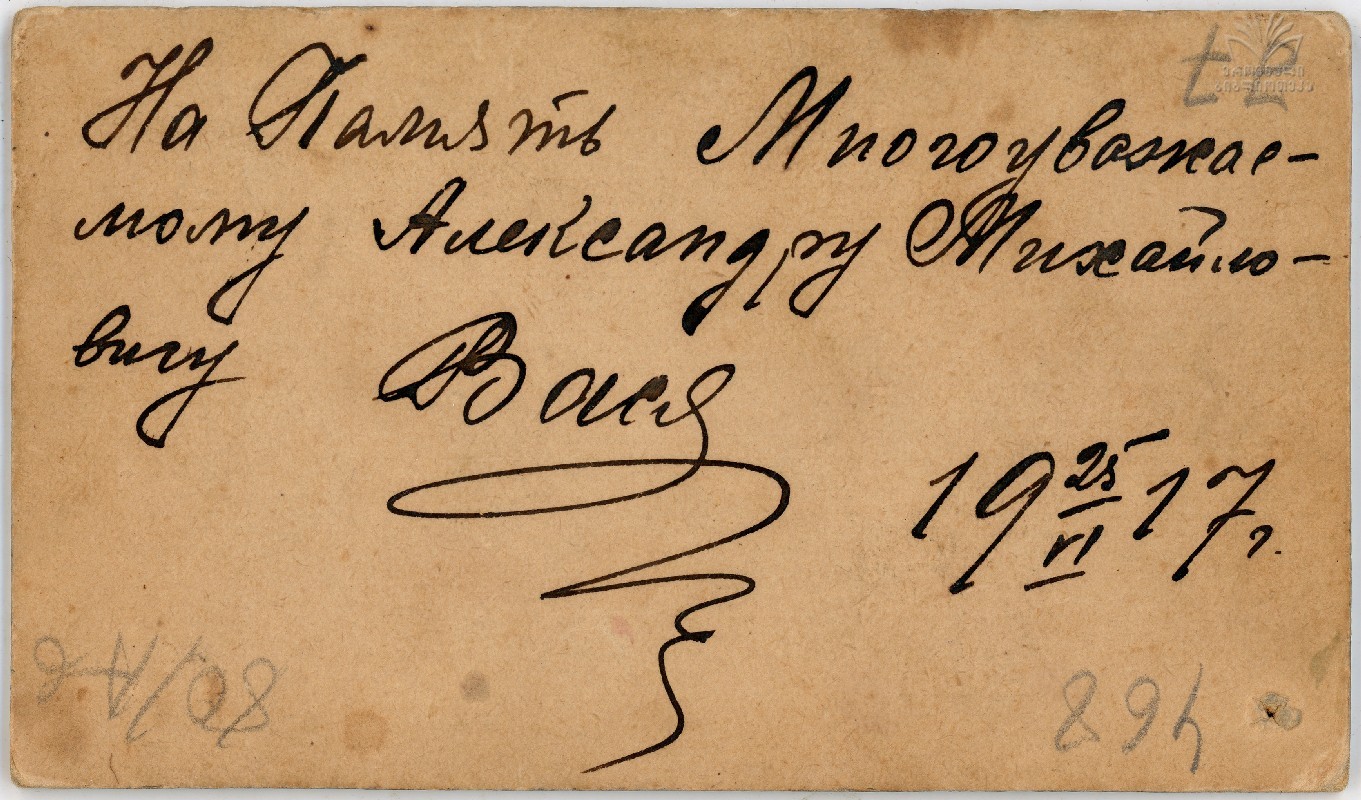 На Память Многоуважае-
мому Александру Михайло-
вичу Вася
19 25/VI 17 г.
468
ეროვნული
ბიბლიოთეკა